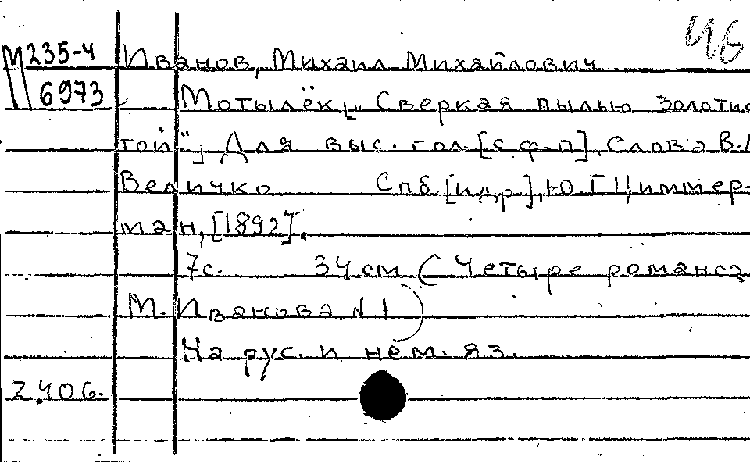 46
М235-4 Иванов, Михаил Михайлович
6973 Мотылёк „Сверкая пылью золотис
той“] Для выс. гол [с ф-п]. Слова В.Л
Величко Спб [и др], Ю.Г Циммер-
ман, [1892].
7с. 34 см (Четыре романса
М. Иванова №1)
На рус. и нем. яз.
2.406.